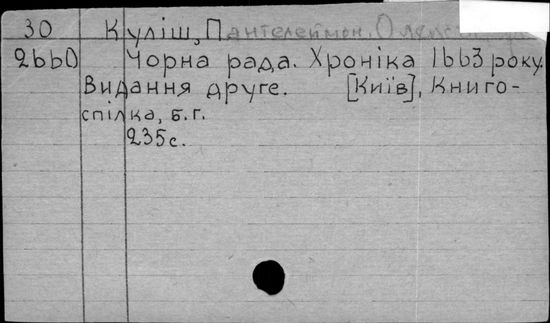 30 Куліш, Пантелеймон
2660 Чорна рада. Хроніка 1663 року.
Видання друге. [Київ], Книго-
спілка, б.г.
235с.